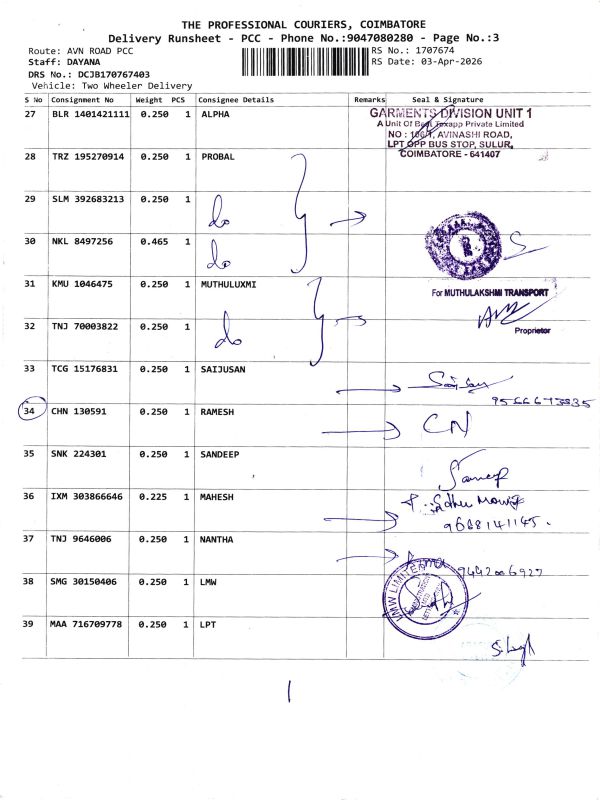 THE PROFESSIONAL COURIERS, COIMBATORE
Delivery Runsheet - PCC - Phone No.:9047080280 - Page No.:3
Route: AVN ROAD PCC RS No.: 1707674
Staff: DAYANA RS Date: 03-Apr-2026
DRS No.: DCJB170767403
Vehicle: Two Wheeler Delivery
S No Consignment No Weight PCS Consignee Details Remarks Seal & Signature
27 BLR 1401421111 0.250 1 ALPHA
GARMENTS DIVISION UNIT 1
A Unit Of Texapp Private Limited
NO : AVINASHI ROAD,
LPT OPP BUS STOP, SULUR,
COIMBATORE - 641407
28 TRZ 195270914 0.250 1 PROBAL
29 SLM 392683213 0.250 1 do
30 NKL 8497256 0.465 1 do
31 KMU 1046475 0.250 1 MUTHULUXMI
For MUTHULAKSHMI TRANSPORT
32 TNJ 70003822 0.250 1 do
Proprietor
33 TCG 15176831 0.250 1 SAIJUSAN
34 CHN 130591 0.250 1 RAMESH CN
35 SNK 224301 0.250 1 SANDEEP
36 IXM 303866646 0.225 1 MAHESH
9688141145.
37 TNJ 9646006 0.250 1 NANTHA
9442006927
38 SMG 30150406 0.250 1 LMW
LMW LIMITED
39 MAA 716709778 0.250 1 LPT